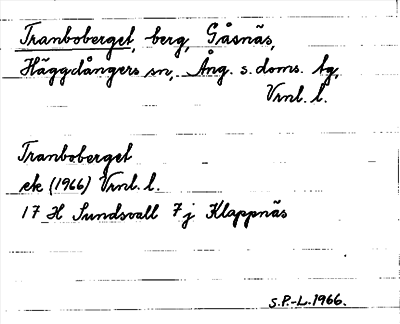 Tranboberget, berg, Gåsnäs,
Häggdångers sn, Ång. s. doms. tg,
Vrnl. l.
Tranboberget
ek (1966) Vrnl. l.
17 H Sundsvall 7 j Klappnäs
S.P.-L. 1966.